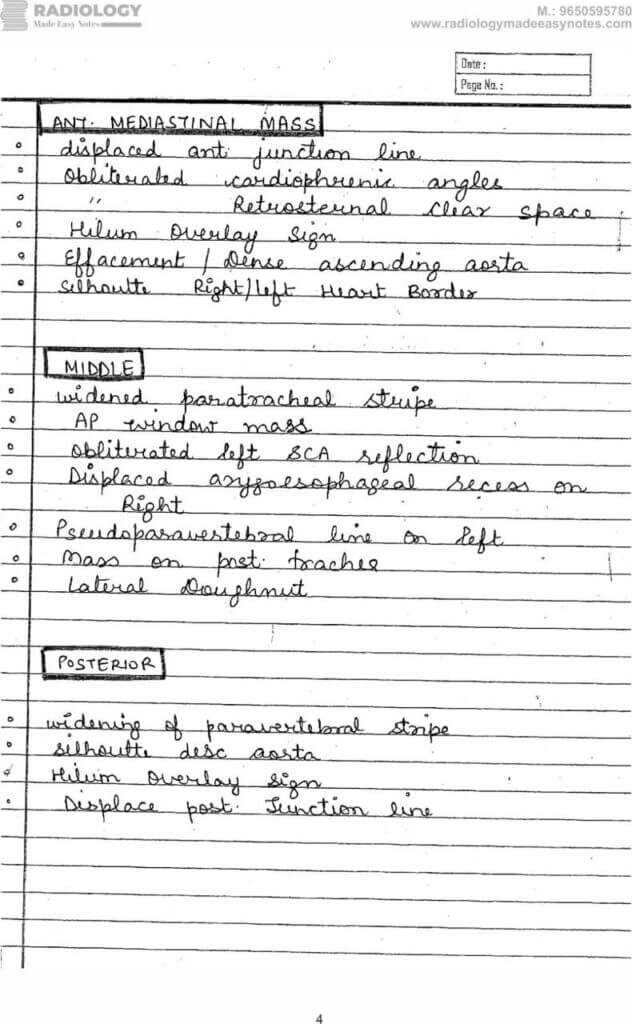 RADIOLOGY
Made Easy Notes
M.: 9650595780
www.radiologymadeeasynotes.com
Date :
Page No. :
ANT. MEDIASTINAL MASS
displaced ant. junction line
Obliterated cardiophrenic angles
" Retrosternal clear space
Hilum Overlay Sign
Effacement / Dense ascending aorta
Silhoutte Right/left Heart Border
MIDDLE
widened paratracheal stripe
AP window mass
Obliterated left SCA reflection
Displaced azygoesophageal recess on
Right
Pseudoparavertebral line on left
Mass on post. trachea
Lateral Doughnut
POSTERIOR
widening of paravertebral stripe
silhoutte desc aorta
Hilum Overlay sign
Displace post. Junction line
4